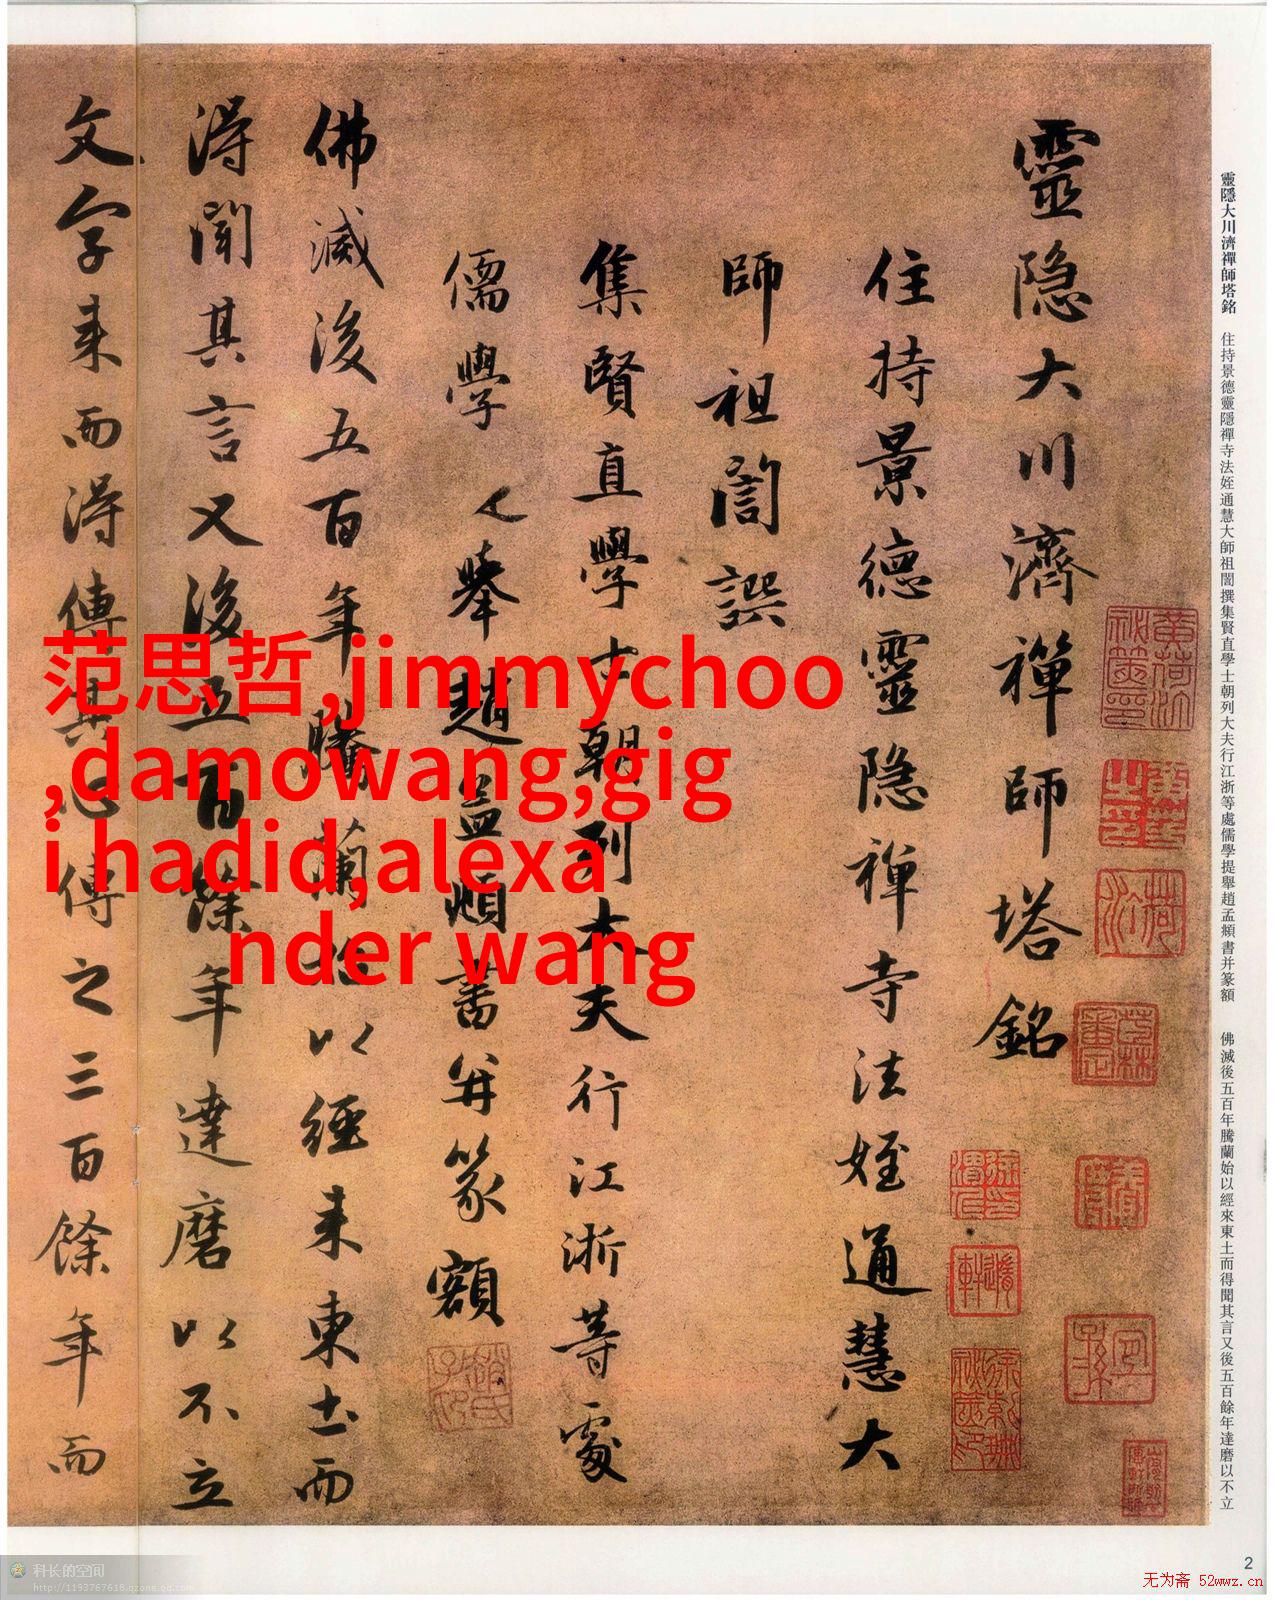 靈隱大川濟禪師塔銘 住持景德靈隱禪寺法姪通慧大師祖誾撰集賢直學士朝列大夫行江浙等處儒學提舉趙孟頫書并篆額 佛滅後五百年騰蘭始以經來東土而得聞其言又後五百餘年達磨以不立
靈隐大川濟禪師塔銘
住持景德靈隐禅寺法姪通慧大
師祖誾譔
集賢直學士朝列大夫行江浙等處
儒學舉趙孟頫書并篆額
佛滅後五百年騰蘭始以經来東土而
得聞其言又後五百餘年達磨以不立
文字来而得傳其心傳之三百餘年而
范思哲,jimmychoo
,damowang,gig
i hadid,alexa
nder wang
科长的空间
http://1193767618.qzone.qq.com
2
无为斋 52wwz.cn